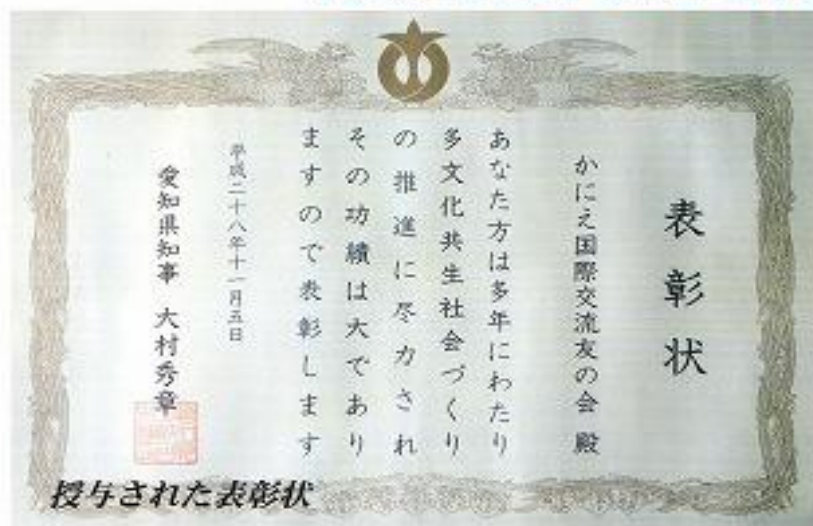 表彰状
かにえ国際交流友の会 殿
あなた方は多年にわたり
多文化共生社会づくり
の推進に尽力され
その功績は大であり
ますので表彰します
平成二十八年十一月五日
愛知県知事 大村秀章
授与された表彰状